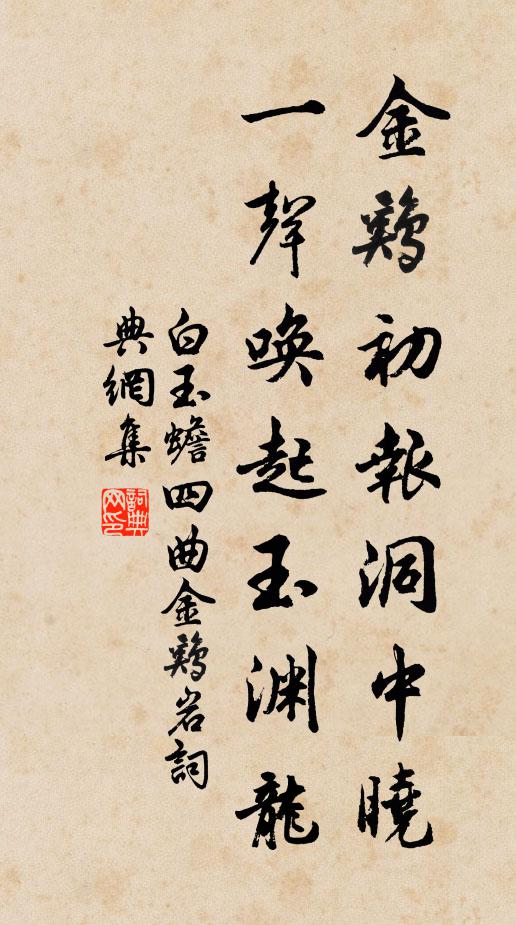 金鷄初報洞中曉
一聲喚起玉渊龍
白玉蟾四曲金鷄岩詞
典網集
詞典网印